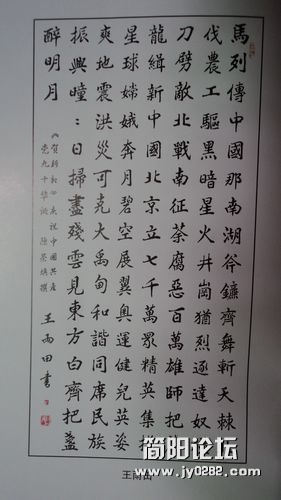 馬列傳中國那南湖斧鐮齊舞斬天棘
伐農工驅黑暗星火井崗猶烈逐達奴
刀劈敵北戰南征荼腐惡百萬雄師把
龍緝新中國北京立七千萬眾精英集
星球嫦娥奔月碧空展翼奧運健兒英姿
爽地震洪災可克大禹甸和諧同席民族
振興曈〻日掃盡殘雲見東方白齊把盞
醉明月
《賀新郎》慶祝中國共產
党九十華誕 陸榮
撰
王雨田書
王雨田
简阳论坛
www.jy0282.com